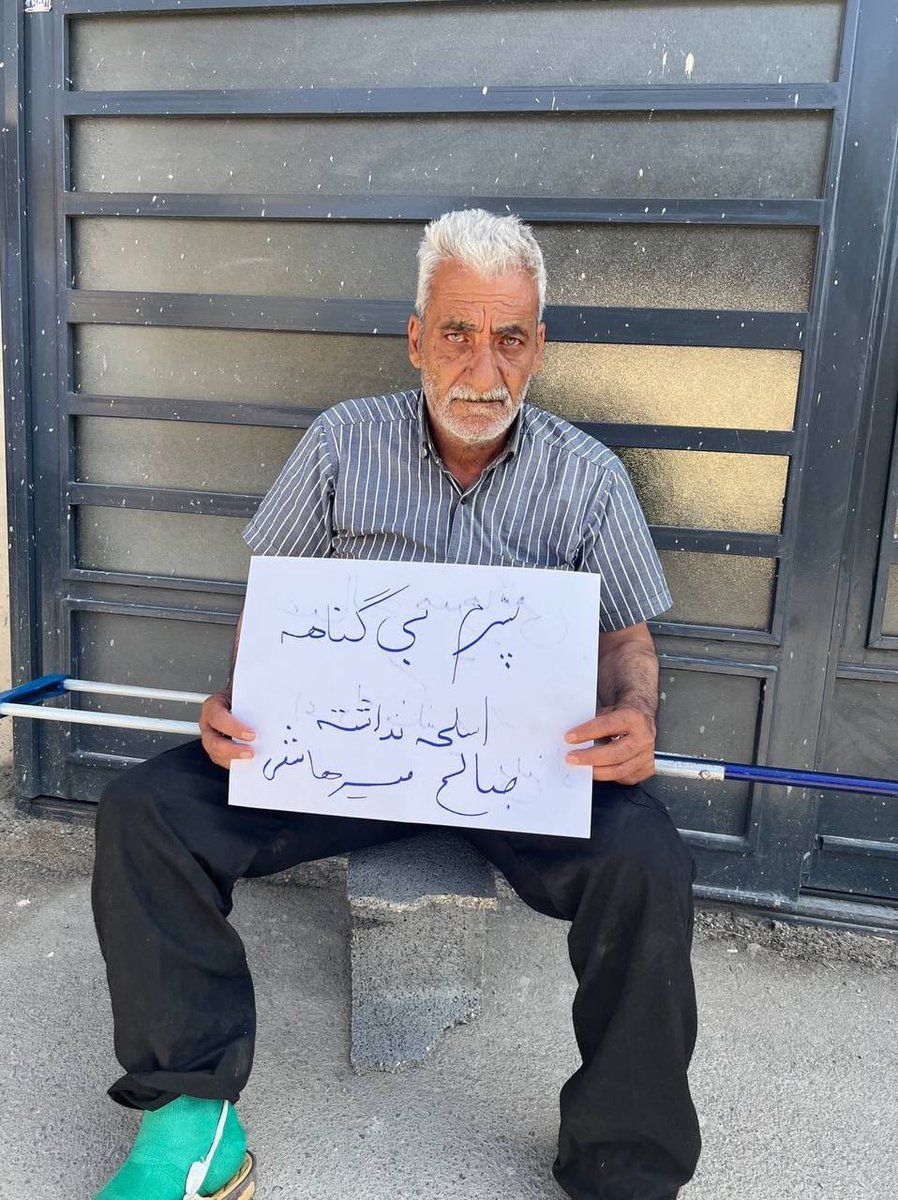 پسرم بی گناهه
اسلحه نداشته
صالح میرهاشمی